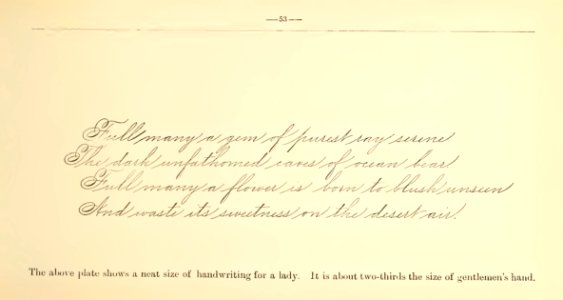 —53—
Full many a gem of purest ray serene
The dark unfathomed caves of ocean bear
Full many a flower is born to blush unseen
And waste its sweetness on the desert air.
The above plate shows a neat size of handwriting for a lady. It is about two-thirds the size of gentlemen's hand.